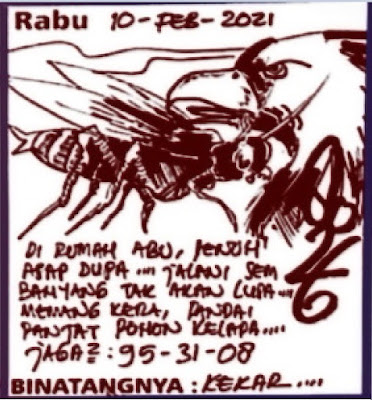 Rabu 10-FEB-2021
DI RUMAH ABU, PENUH
ASAP DUPA.... JALANI SEM
BAHYANG TAK AKAN LUPA....
MEMANG KERA, PANDAI
PANJAT POHON KELAPA....
JAGA2 : 95-31-08
BINATANGNYA : KEKAR....